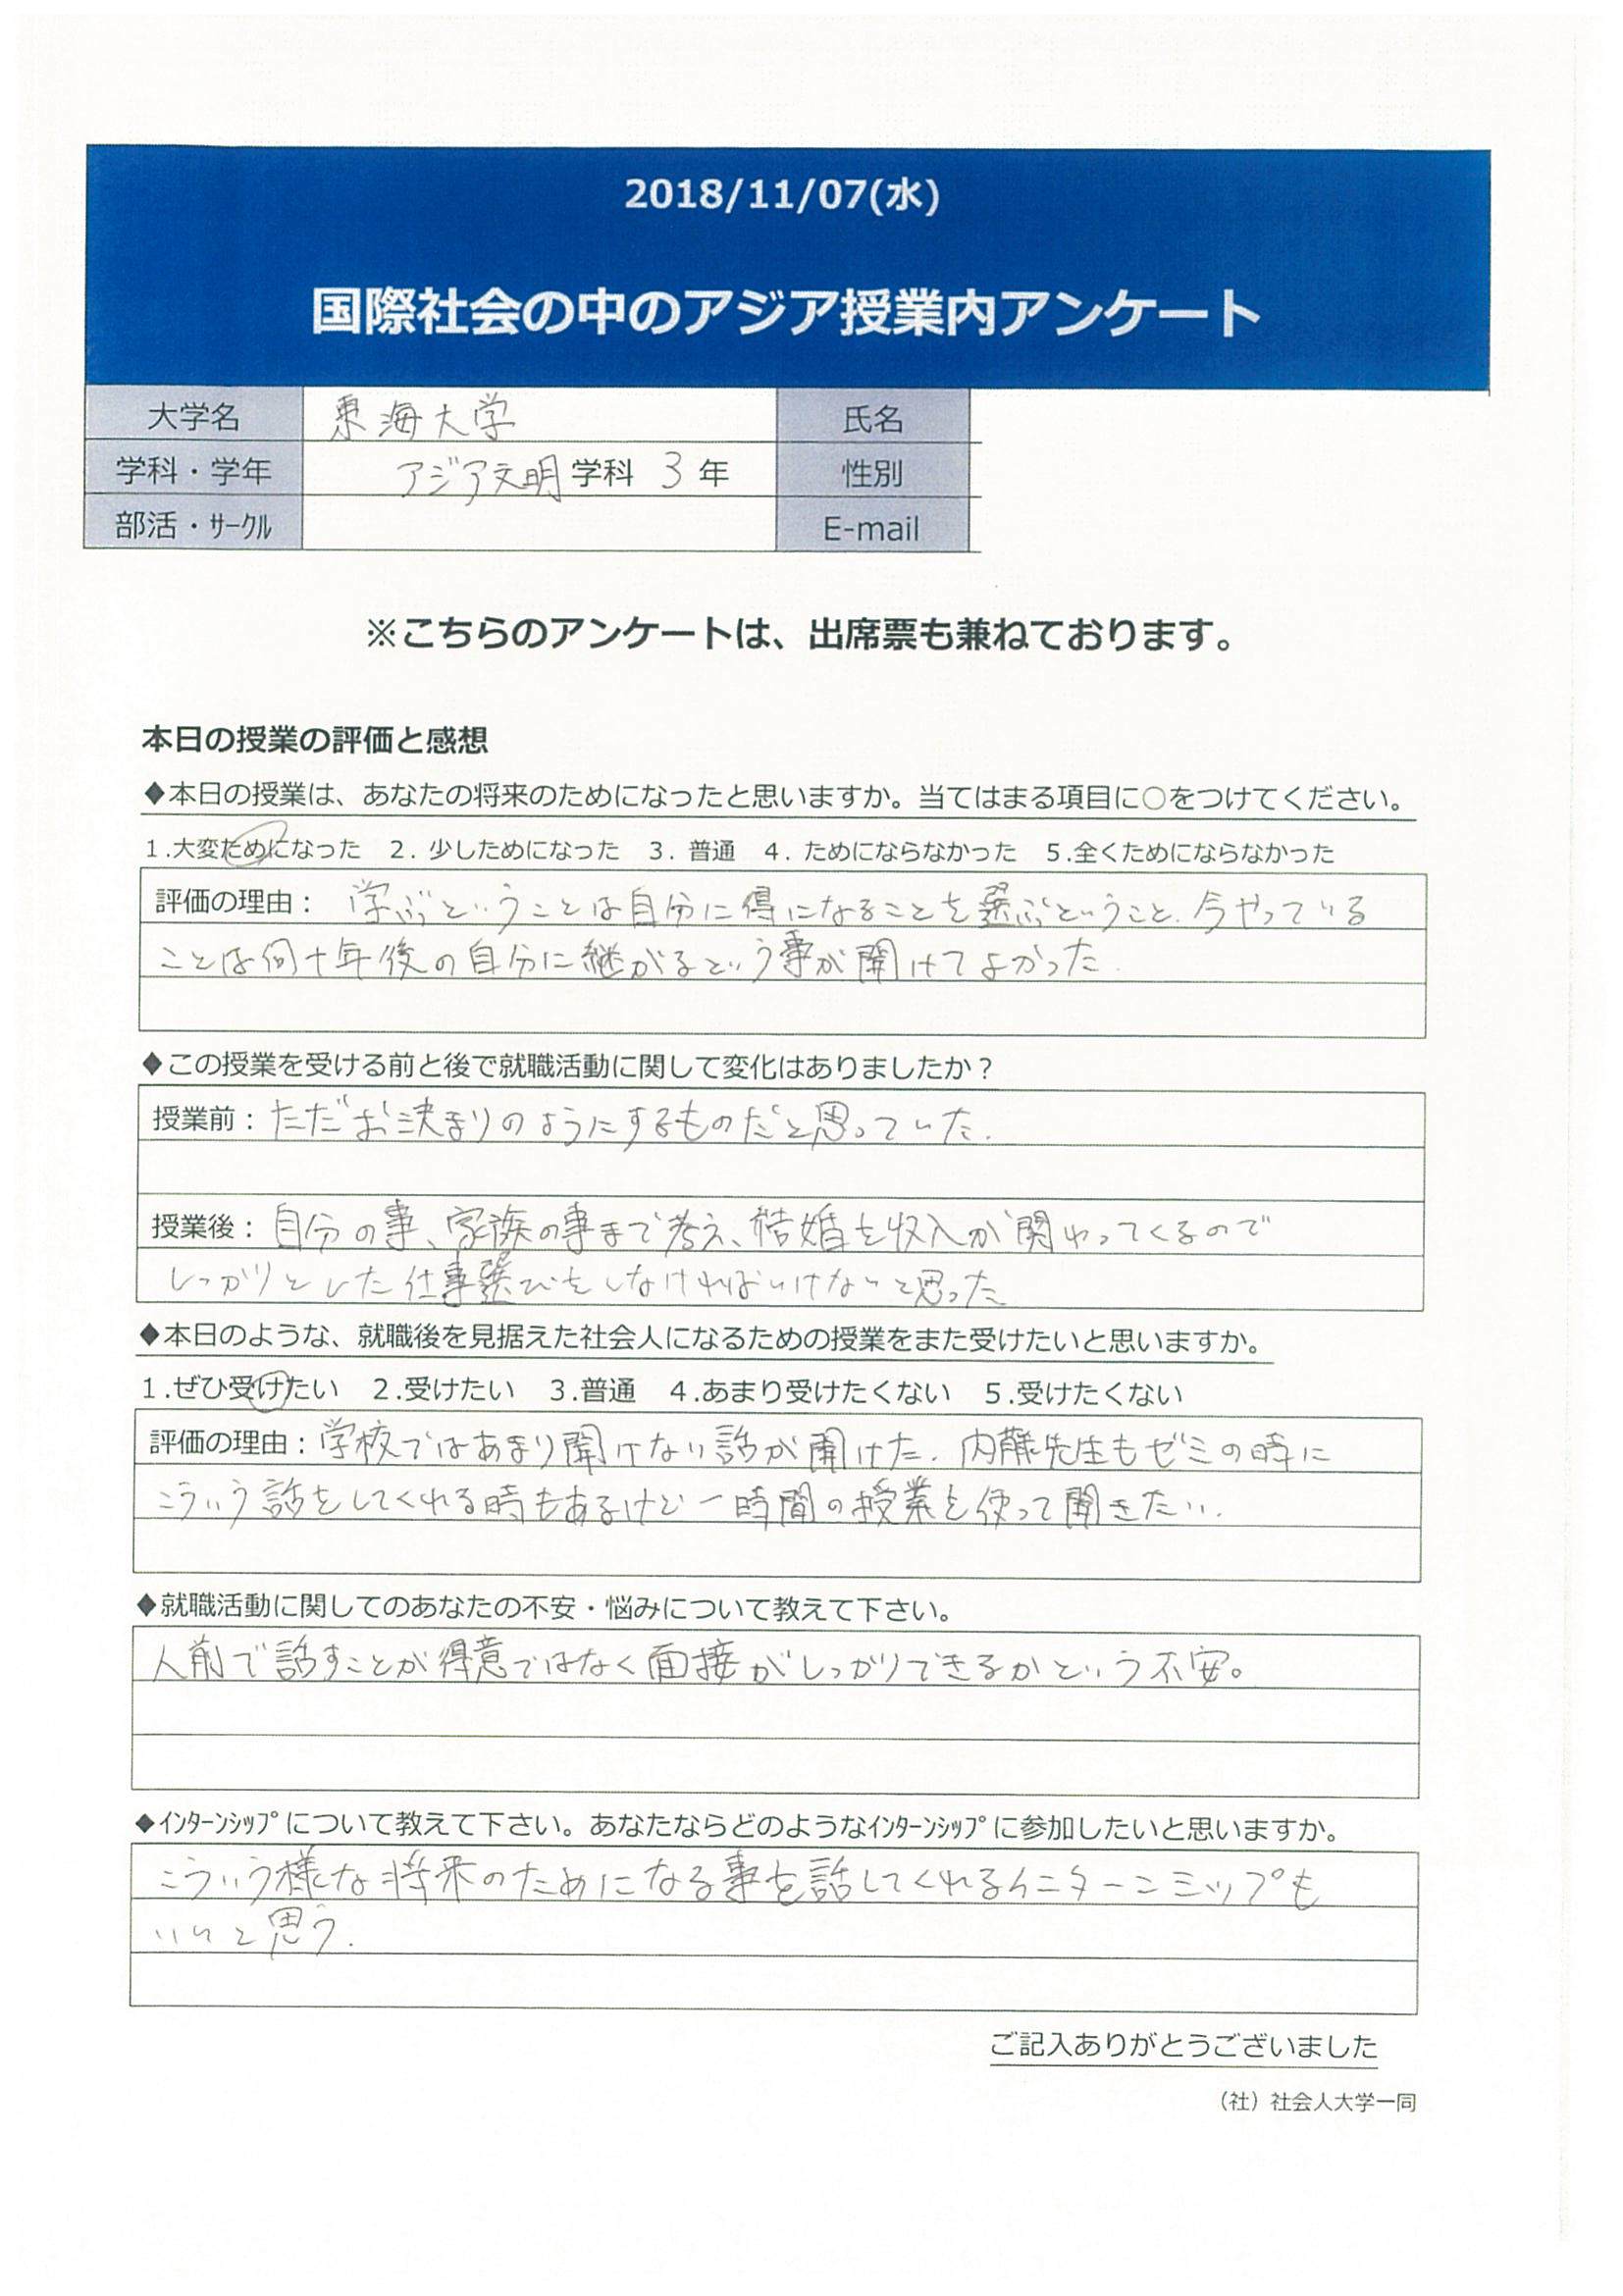 2018/11/07(水)
国際社会の中のアジア授業内アンケート
大学名 東海大学 氏名
学科・学年 アジア文明学科 3年 性別
部活・ｻｰｸﾙ E-mail
※こちらのアンケートは、出席票も兼ねております。
本日の授業の評価と感想
◆本日の授業は、あなたの将来のためになったと思いますか。当てはまる項目に○をつけてください。
1.大変ためになった 2. 少しためになった 3. 普通 4. ためにならなかった 5.全くためにならなかった
評価の理由： 学ぶということは自分に得になることを選ぶということ. 今やっている
ことは何十年後の自分に継がるという事が聞けてよかった.
◆この授業を受ける前と後で就職活動に関して変化はありましたか？
授業前：ただお決まりのようにするものだと思っていた.
授業後：自分の事、家族の事まで考え、結婚も収入が関わってくるので
しっかりとした仕事選びをしなければいけないと思った
◆本日のような、就職後を見据えた社会人になるための授業をまた受けたいと思いますか。
1.ぜひ受けたい 2.受けたい 3.普通 4.あまり受けたくない 5.受けたくない
評価の理由：学校ではあまり聞けない話が聞けた. 内藤先生もゼミの時に
こういう話をしてくれる時もあるけど一時間の授業を使って聞きたい.
◆就職活動に関してのあなたの不安・悩みについて教えて下さい。
人前で話すことが得意ではなく面接がしっかりできるかという不安。
◆ｲﾝﾀｰﾝｼｯﾌﾟについて教えて下さい。あなたならどのようなｲﾝﾀｰﾝｼｯﾌﾟに参加したいと思いますか。
こういう様な将来のためになる事を話してくれるインターンシップも
いいと思う.
ご記入ありがとうございました
（社）社会人大学一同